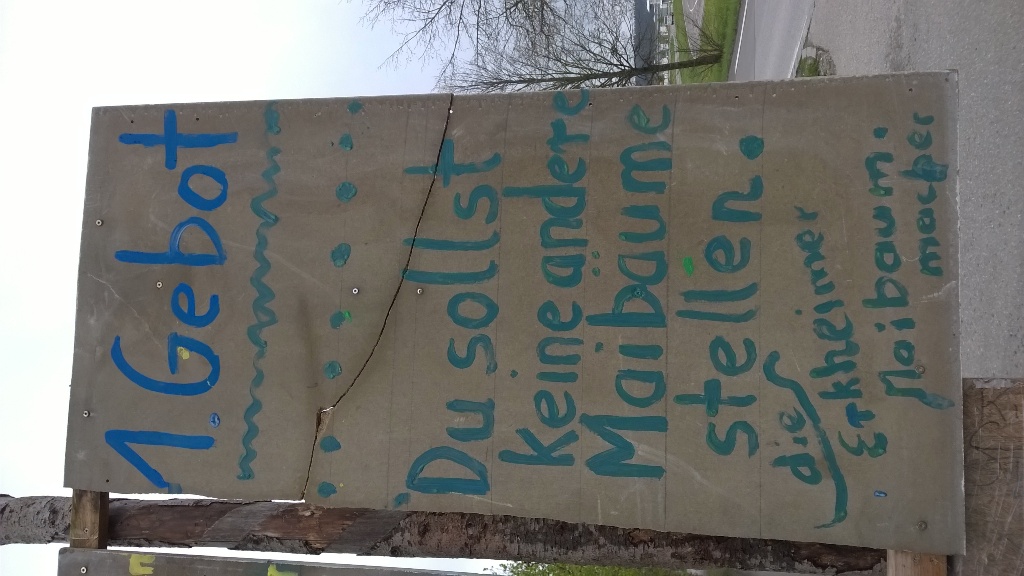 1. Gebot
Du sollst
keine andere
Maibäume
stellen.
die
Erkheimer
Maibaum.
macher